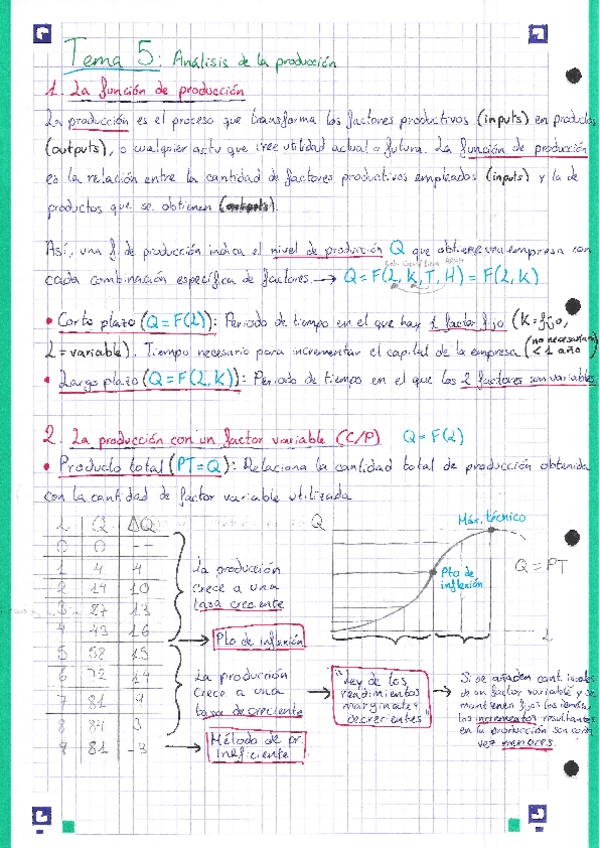 Tema 5: Análisis de la producción
1. La función de producción
La producción es el proceso que transforma los factores productivos (inputs) en productos
(outputs), o cualquier actv que cree utilidad actual o futura. La función de producción
es la relación entre la cantidad de factores productivos empleados (inputs) y la de
productos que se obtienen (outputs).
Así, una f. de producción indica el nivel de producción Q que obtiene una empresa con
cada combinación específica de factores. → Q = F(L, K, T, H) = F(L, K)
• Corto plazo (Q = F(L)): Periodo de tiempo en el que hay 1 factor fijo (K = fijo,
L = variable). Tiempo necesario para incrementar el capital de la empresa (no necesariam < 1 año)
• Largo plazo (Q = F(L, K)): Periodo de tiempo en el que los 2 factores son variables.
2. La producción con un factor variable (C/P) Q = F(L)
• Producto total (PT = Q): Relaciona la cantidad total de producción obtenida
con la cantidad de factor variable utilizada
L Q ΔQ
0 0 --
1 4 4
2 14 10
3 27 13
4 43 16
5 58 15
6 72 14
7 81 9
8 84 3
9 81 -3
La producción
crece a una
tasa creciente
→ Pto de inflexión
La producción
crece a una
tasa decreciente
→ Método de pr.
ineficiente
→ "Ley de los
rendimientos
marginales
decrecientes"
→ Si se añaden cant
de un factor variable y se
mantienen fijos los demás,
los incrementos resultantes
en la producción son cada
vez menores.
Q
Máx. técnico
Pto de
inflexión
Q = PT
L